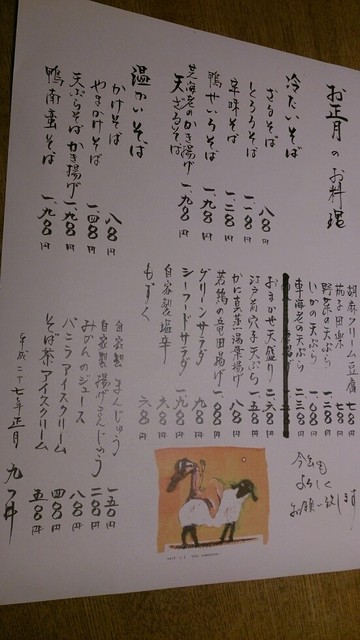 お正月のお料理
冷たいそば
ざるそば 八〇〇円
とろろそば 一、一〇〇円
辛味そば 一、二〇〇円
鴨せいろそば 一、九〇〇円
芝海老のかき揚げ
天ざるそば 一、九〇〇円
温かいそば
かけそば 八〇〇円
やまかけそば 一、四〇〇円
天ぷらそばかき揚げ 一、九〇〇円
鴨南蛮そば 一、九〇〇円
胡麻クリーム豆腐
茄子田楽
野菜の天ぷら
いかの天ぷら 一、〇〇〇円
車海老の天ぷら 二、三〇〇円
おまかせ天盛り 二、六〇〇円
江戸前穴子天ぷら 一、五〇〇円
かに真薯湯葉揚げ 八〇〇円
若鶏の竜田揚げ 一、〇〇〇円
グリーンサラダ 九〇〇円
シーフードサラダ 一、九〇〇円
自家製塩辛 六〇〇円
もずく 六〇〇円
自家製まんじゅう 一五〇円
自家製揚げまんじゅう 二〇〇円
みかんのジュース 八〇〇円
バニラアイスクリーム 四〇〇円
そば茶アイスクリーム 五〇〇円
今年も
よろしく
お願い致します
平成二十七年正月 九つ井